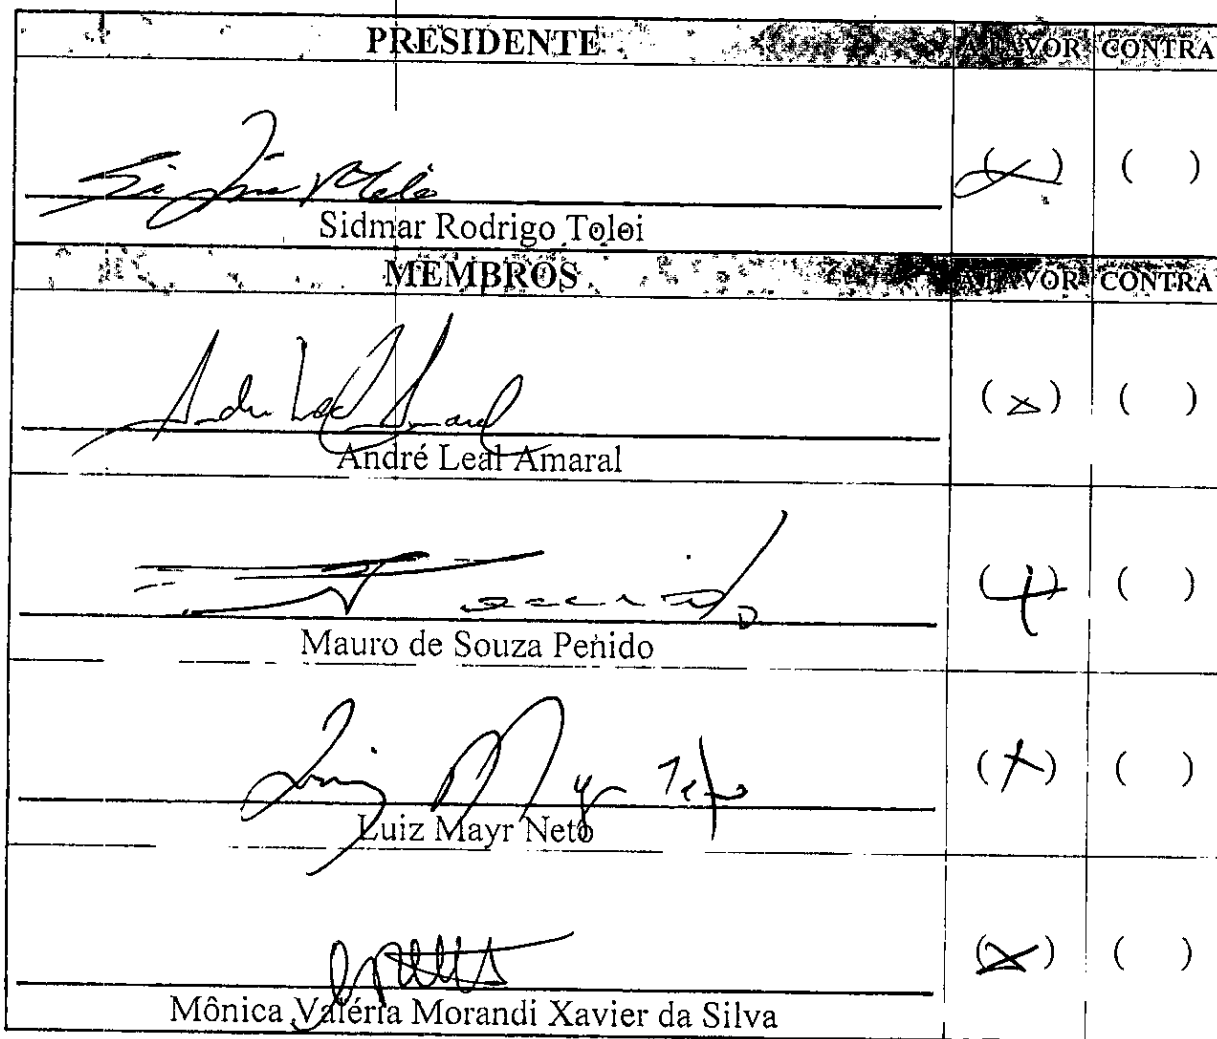 PRESIDENTE A FAVOR CONTRA
( ) ( )
Sidmar Rodrigo Toloi
MEMBROS A FAVOR CONTRA
André Leal Amaral
(x) ( )
André Leal Amaral
(x) ( )
Mauro de Souza Penido
Luiz Mayr Neto (x) ( )
Luiz Mayr Neto
(x) ( )
Mônica Valéria Morandi Xavier da Silva